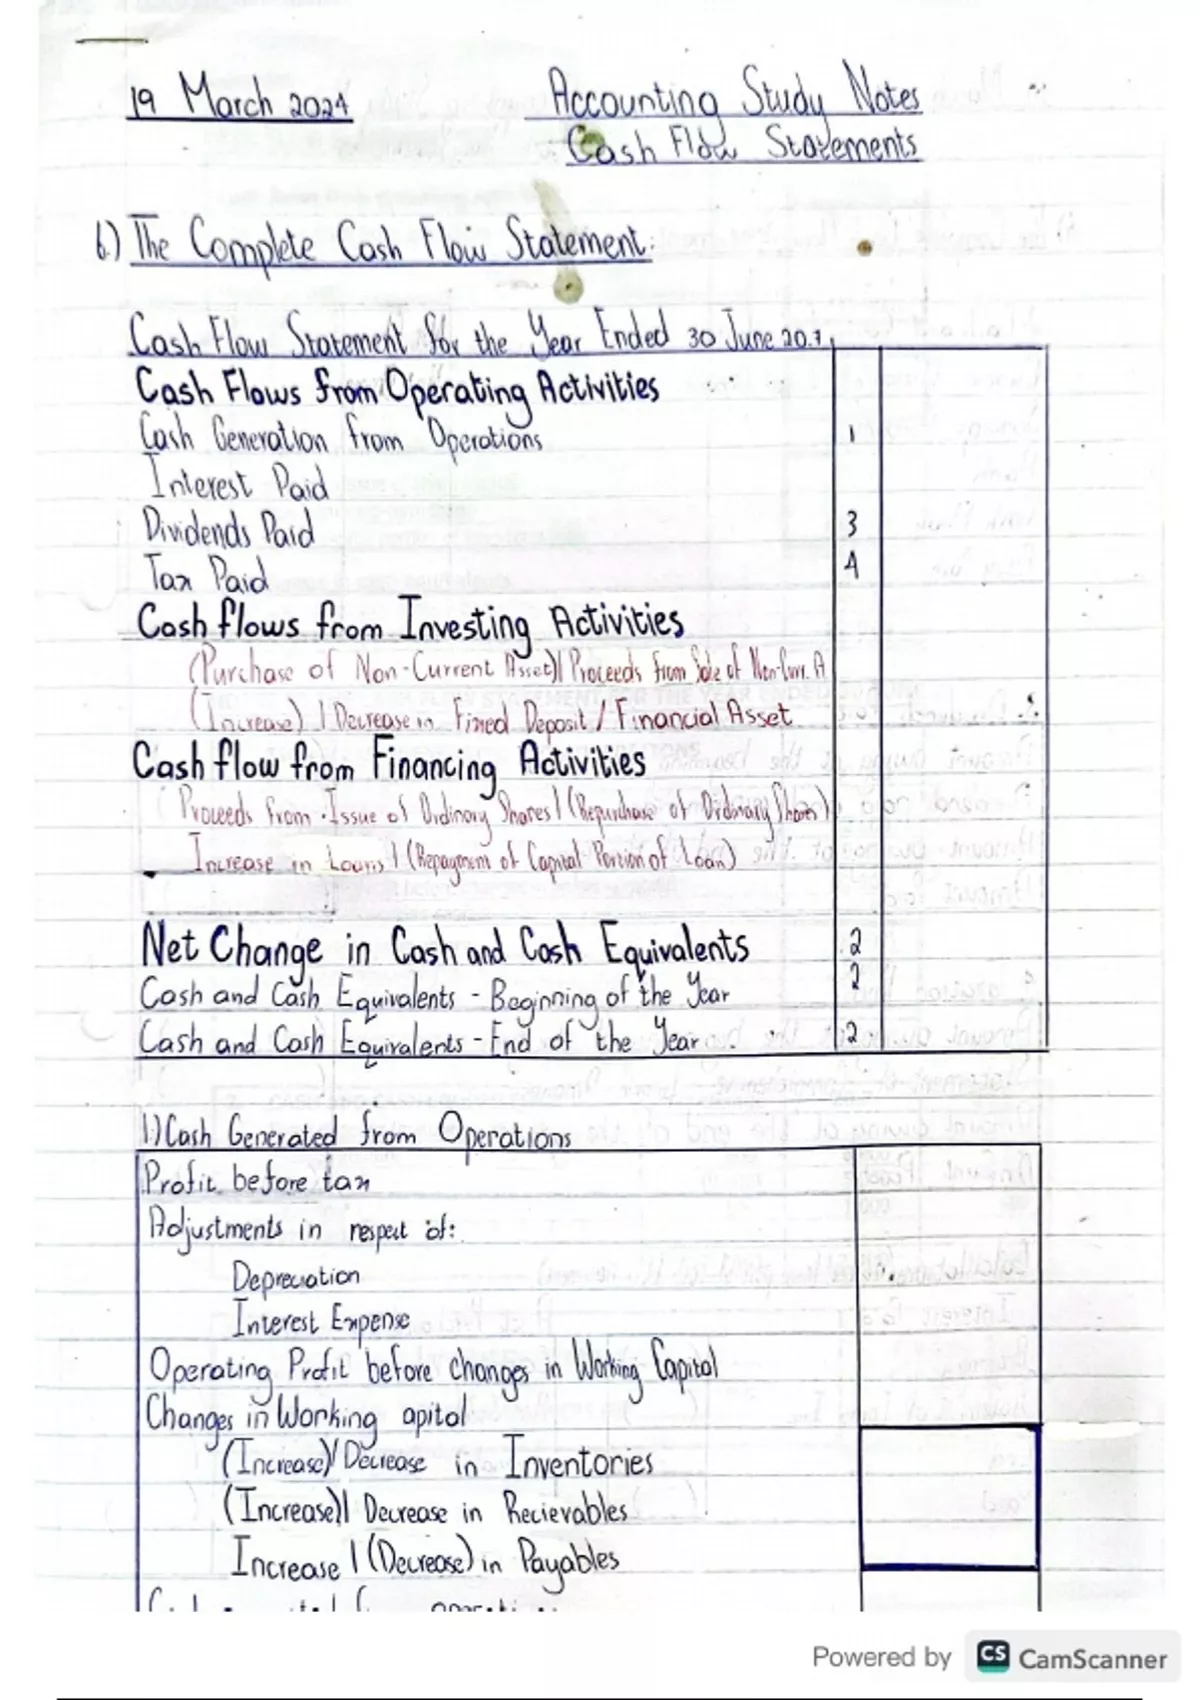 19 March 2024 Accounting Study Notes
Cash Flow Statements
6.) The Complete Cash Flow Statement:
Cash Flow Statement for the Year Ended 30 June 20.7
Cash Flows from Operating Activities
Cash Generation from Operations 1
Interest Paid
Dividends Paid 3
Tax Paid 4
Cash flows from Investing Activities
(Purchase of Non-Current Asset)/ Proceeds from Sale of Non-Curr. A
(Increase) / Decrease in Fixed Deposit / Financial Asset
Cash flow from Financing Activities
Proceeds from Issue of Ordinary Shares / (Repurchase of Ordinary Shares)
Increase in Loans / (Repayment of Capital Portion of Loan)
Net Change in Cash and Cash Equivalents 2
Cash and Cash Equivalents - Beginning of the Year 2
Cash and Cash Equivalents - End of the Year 2
1.) Cash Generated from Operations
Profit before tax
Adjustments in respect of:
Depreciation
Interest Expense
Operating Profit before changes in Working Capital
Changes in Working apital
(Increase)/ Decrease in Inventories
(Increase)/ Decrease in Recievables
Increase / (Decrease) in Payables
Powered by CS CamScanner